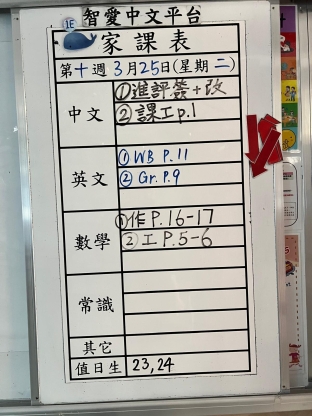 智愛中文平台
1E
家課表
第十週3月25日(星期二)
中文
①進評簽+改
②課工p.1
英文
①WB P.11
②Gr.P.9
數學
①作P.16-17
②工P.5-6
常識
其它
值日生 23,24